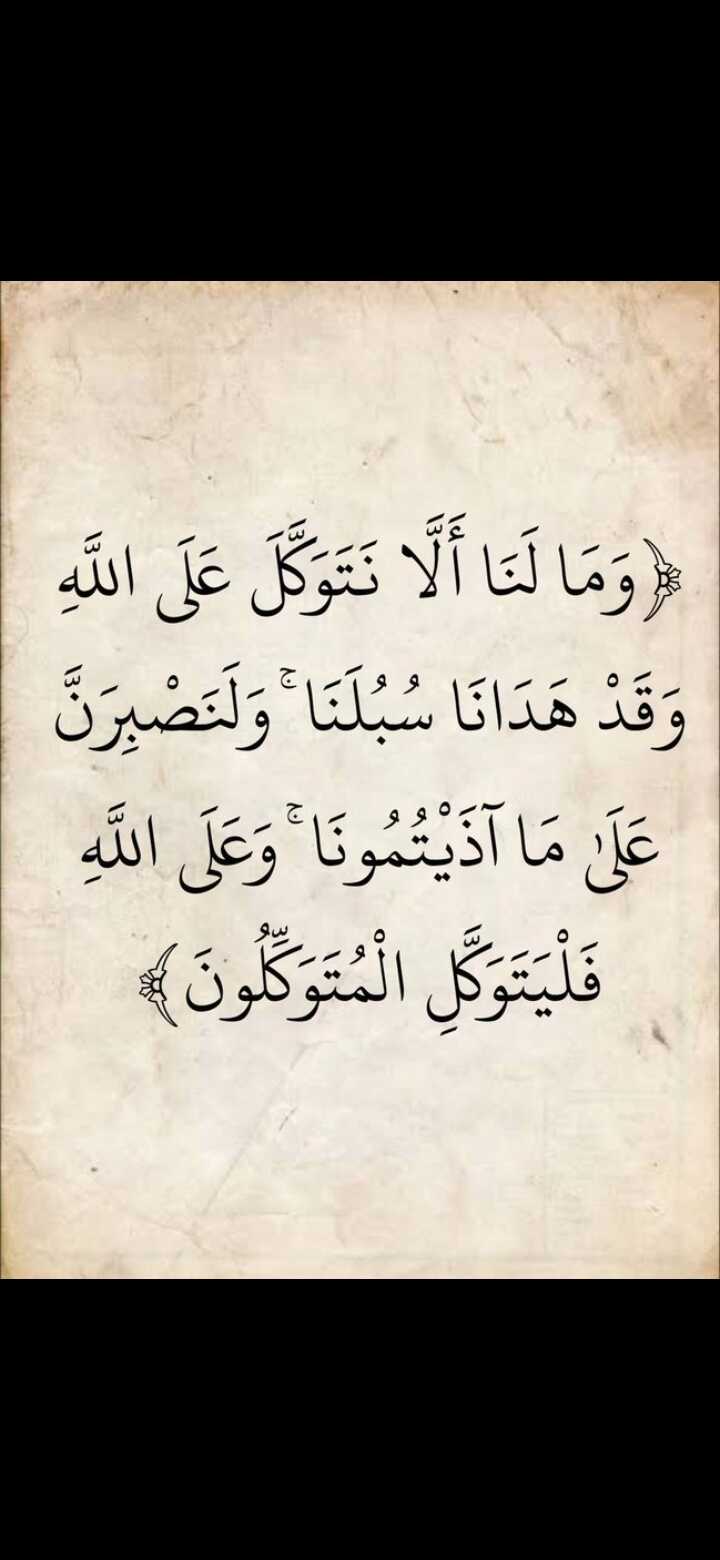 ﴿وَمَا لَنَا أَلَّا نَتَوَكَّلَ عَلَى اللَّهِ
وَقَدْ هَدَانَا سُبُلَنَا ۚ وَلَنَصْبِرَنَّ
عَلَىٰ مَا آذَيْتُمُونَا ۚ وَعَلَى اللَّهِ
فَلْيَتَوَكَّلِ الْمُتَوَكِّلُونَ﴾